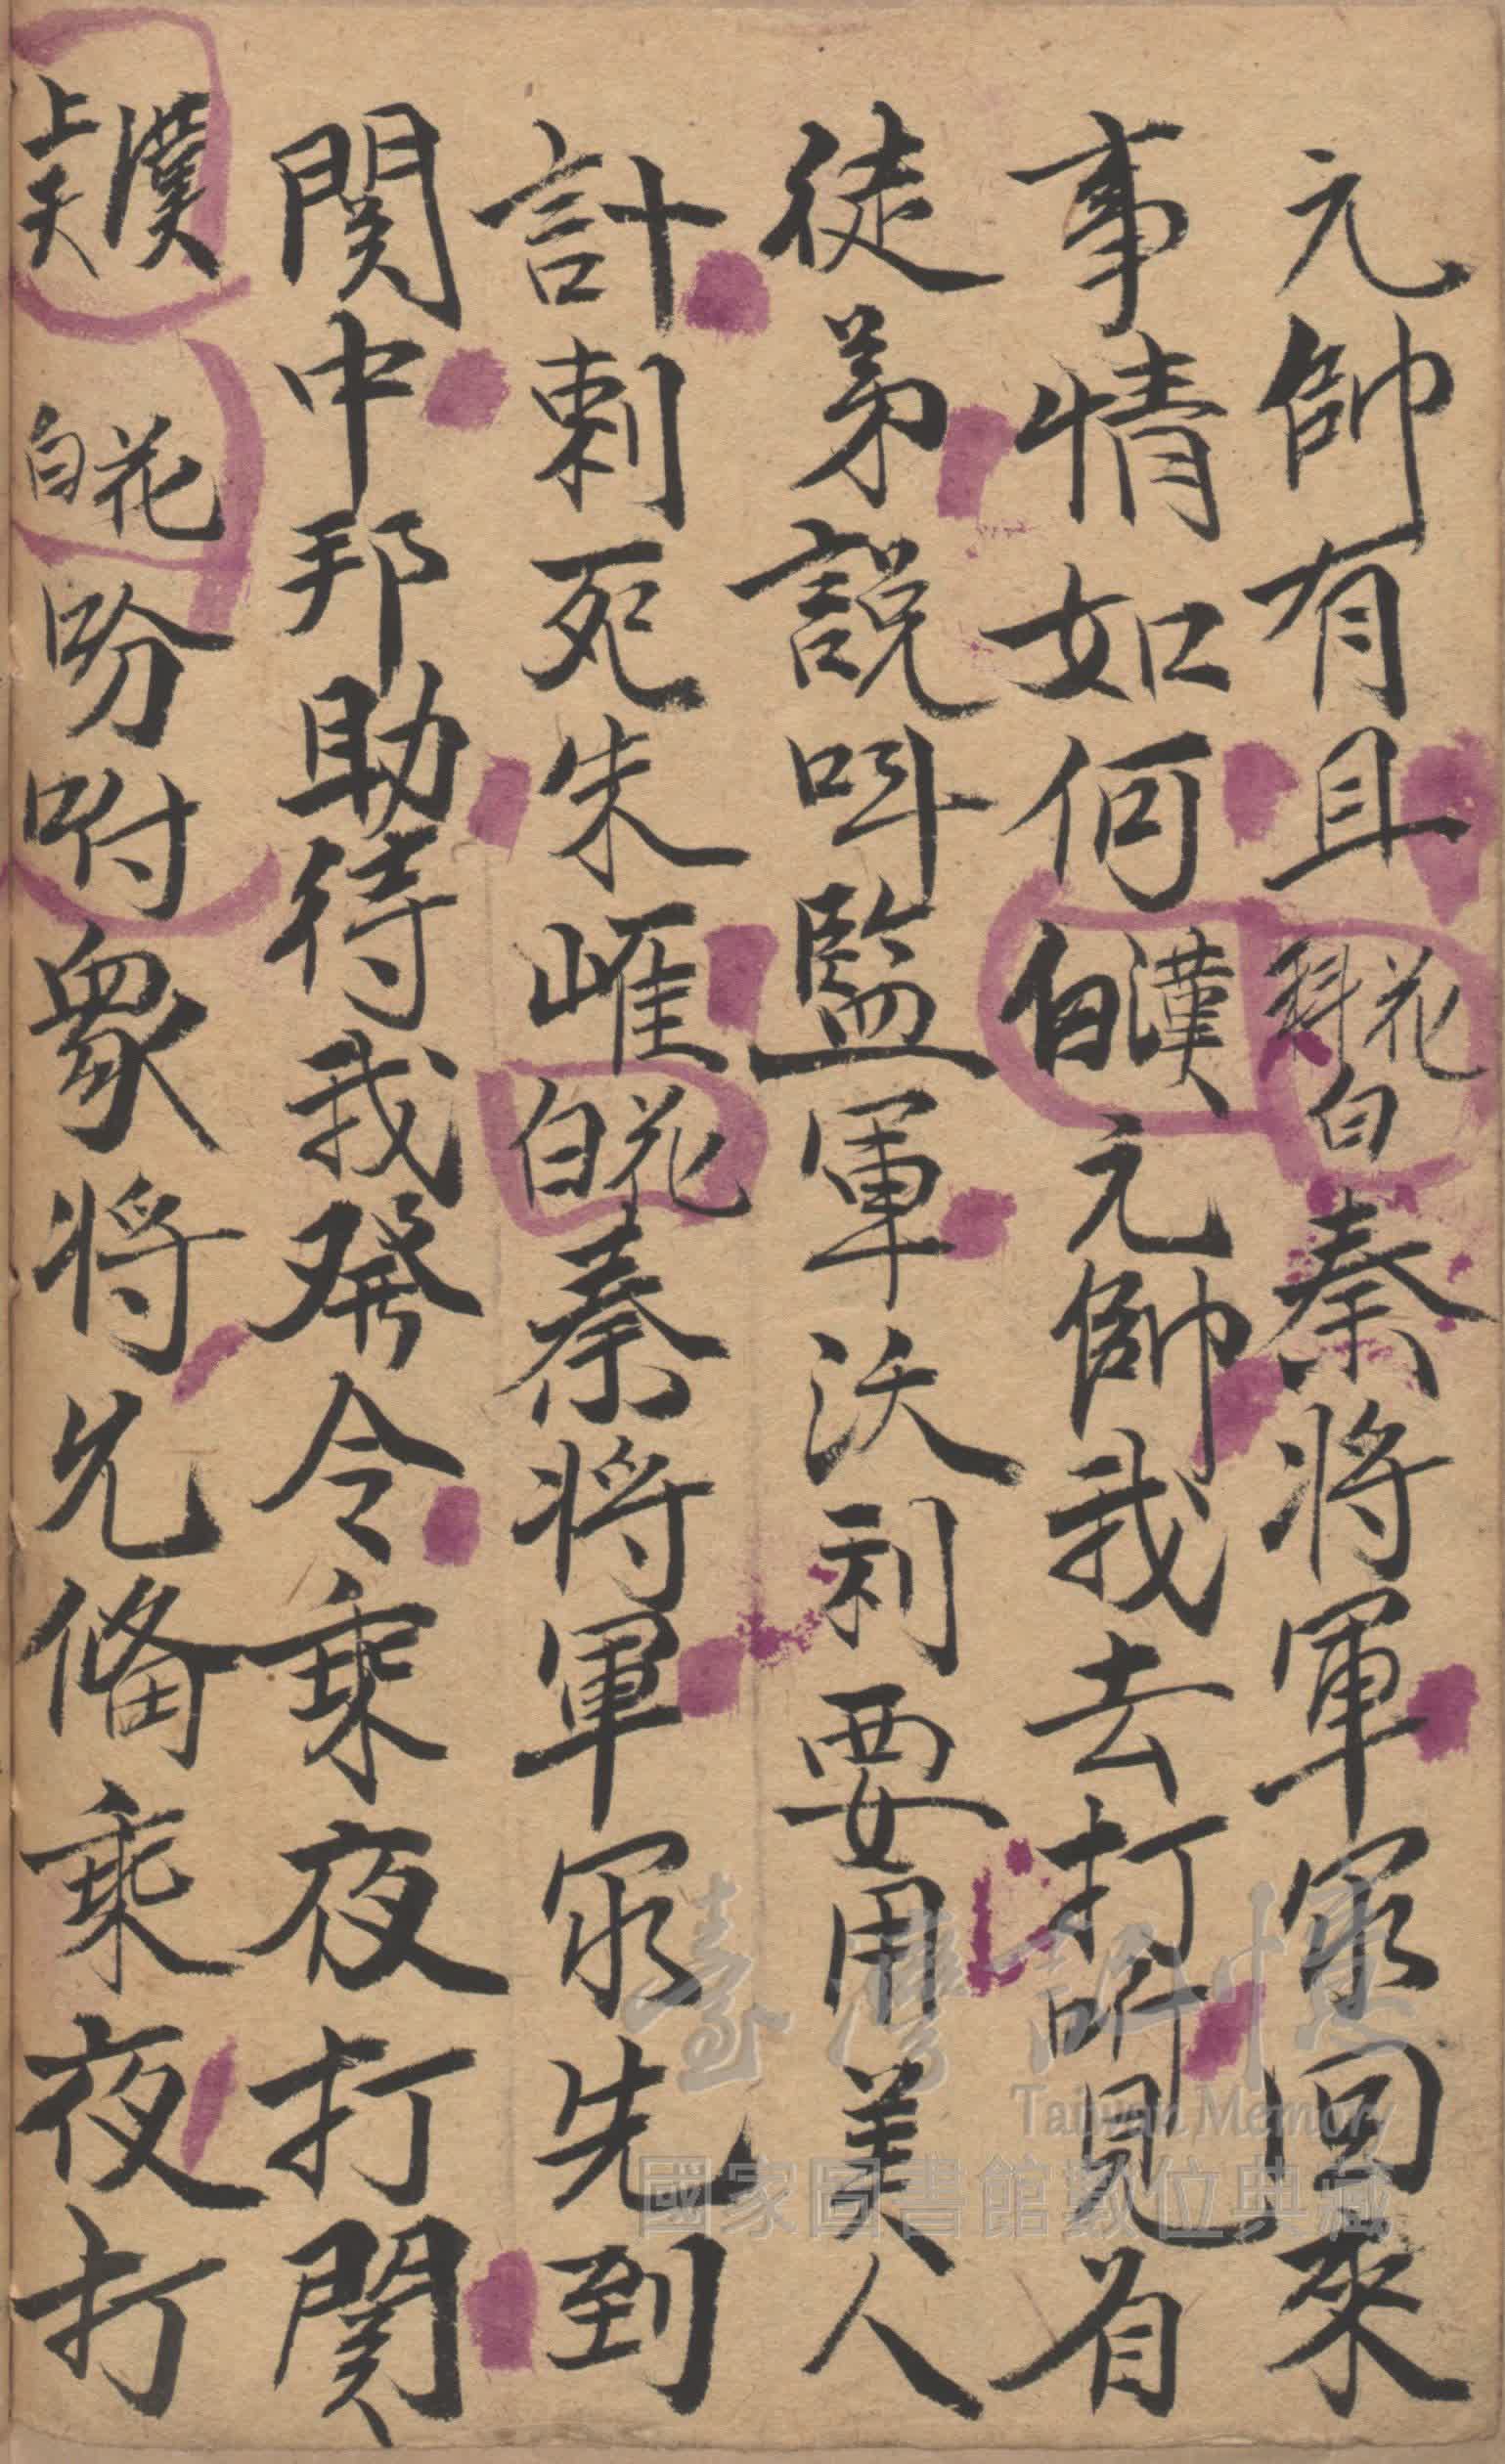 元帥有且花科白秦將軍冞回來
事情如何漢白元帥我去打听見有
徒弟說呌監軍沃利要用美人
計刺死朱崕花白秦將軍冞先到
関中邦助待我發令乘夜打関
漢上關天花白吩咐衆將兄俻乘夜打
臺灣記憶
Taiwan Memory
國家圖書館數位典藏